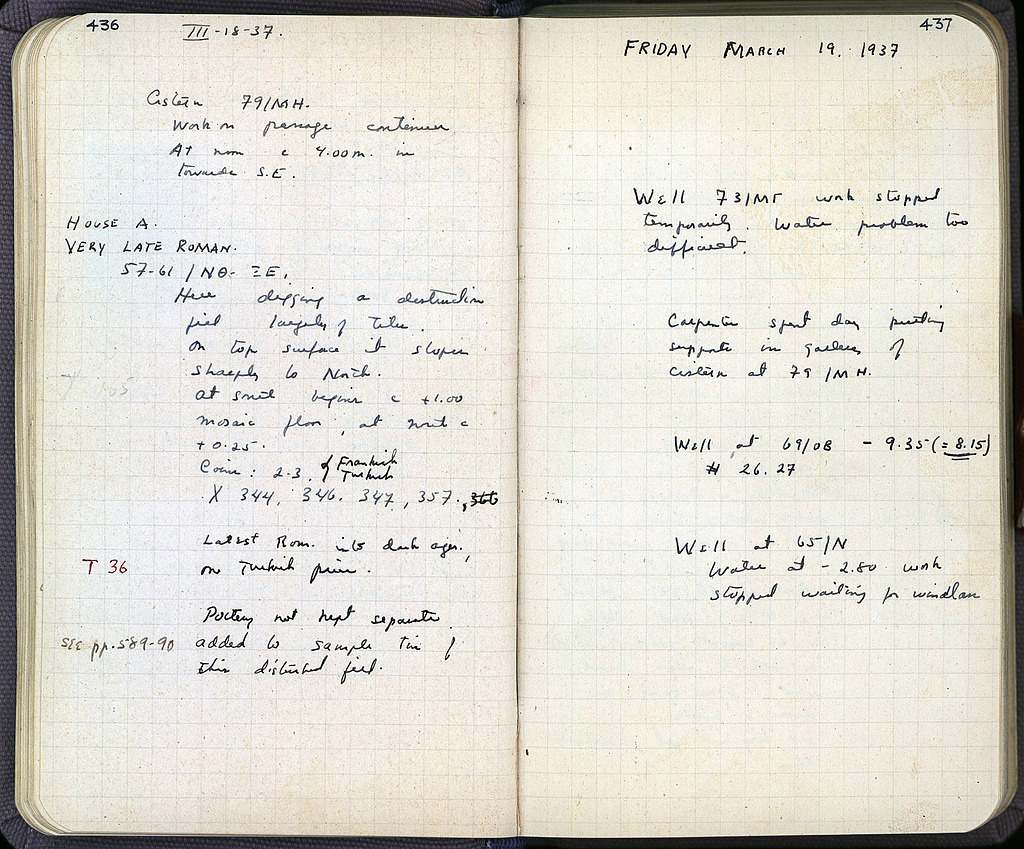 436
III-18-37.
Cistern 79/MH.
Work on passage continues
At noon c 4.00 m. in
towards S.E.
HOUSE A.
VERY LATE ROMAN.
57-61 / NΘ- ΞE.
Here digging a destruction
fill largely of tile.
On top surface it slopes
sharply to North.
at south begins c +1.00
mosaic floor, at north c
+ 0.25.
Coins: 2-3. of Frankish
Turkish
X 344, 346. 347, 357., 366
Latest Rom. into dark ages.,
T 36
one Turkish piece.
Pottery not kept separate
SEE pp. 589-90
added to sample tin of
this disturbed fill.
437
FRIDAY MARCH 19. 1937
Well 73/MΓ work stopped
temporarily. Water problem too
difficult.
Carpenter spent day putting
supports in gallery of
cistern at 79 /MH.
Well at 69/OB - 9.35 (= 8.15)
# 26. 27
Well at 65/N
Water at - 2.80. work
stopped waiting for windlass